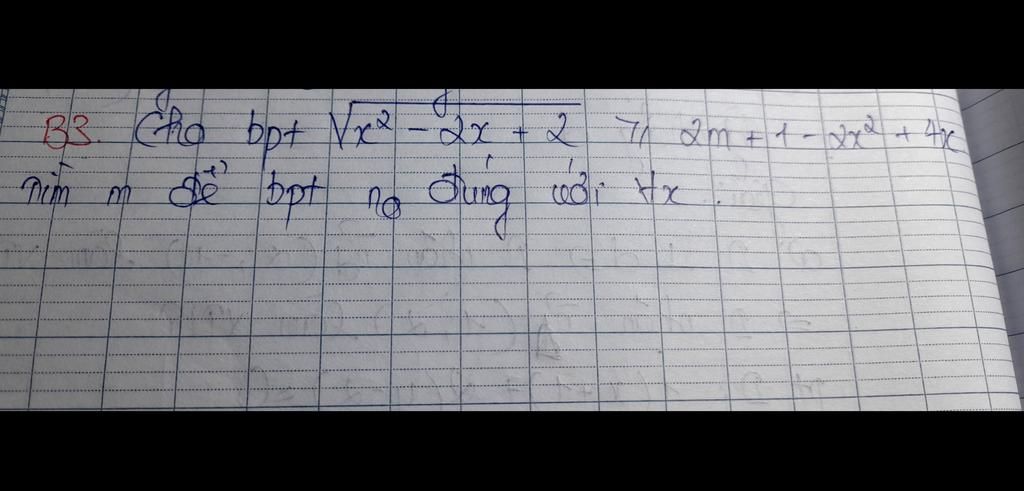 B3. Cho bpt √x² - 2x + 2 ⩾ 2m + 1 - 2x² + 4x
Tìm m để bpt no đúng với ∀x.